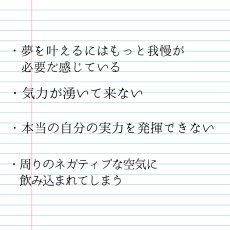 ・夢を叶えるにはもっと我慢が
必要だ感じている
・気力が湧いて来ない
・本当の自分の実力を発揮できない
・周りのネガティブな空気に
飲み込まれてしまう